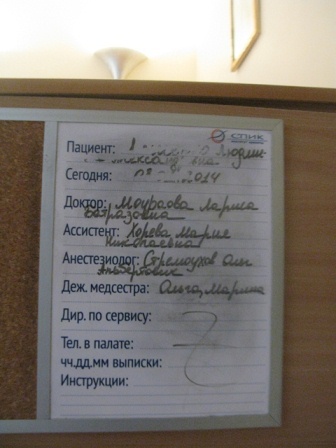 СПИК
Пациент:
Александровна
Сегодня: 2014
Доктор: Моураова Лариса
Батразовна
Ассистент: Хорева Мария
Николаевна
Анестезиолог: Стремоухов Олег
Альбертович
Деж. медсестра: Ольга, Марина
Дир. по сервису:
Тел. в палате:
чч.дд.мм выписки:
Инструкции: